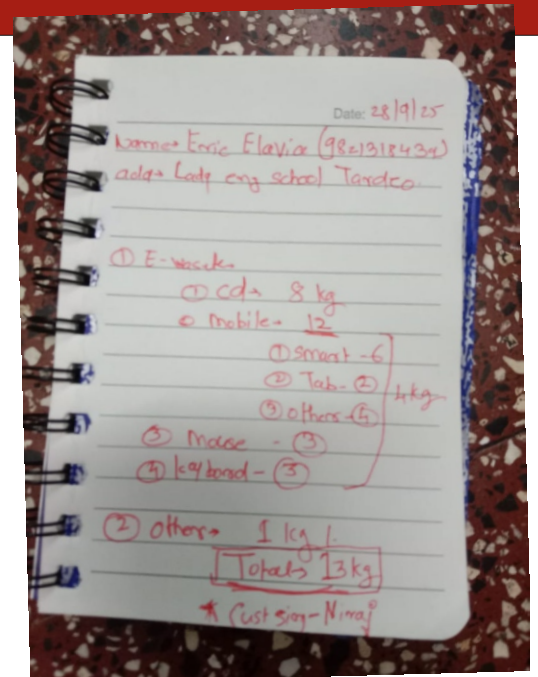 Date: 28/9/25
Name→ Enric Elavia (9821318434)
add→ Lady eng school Tardeo.
① E-waste→
① cd→ 8 kg
② mobile→ 12
① smart - 6
② Tab - ②
4kg
③ others - ④
③ mouse - ③
④ keyboard - ③
② other→ 1 kg /.
Total→ 13 kg
* Cust sign - Niraj